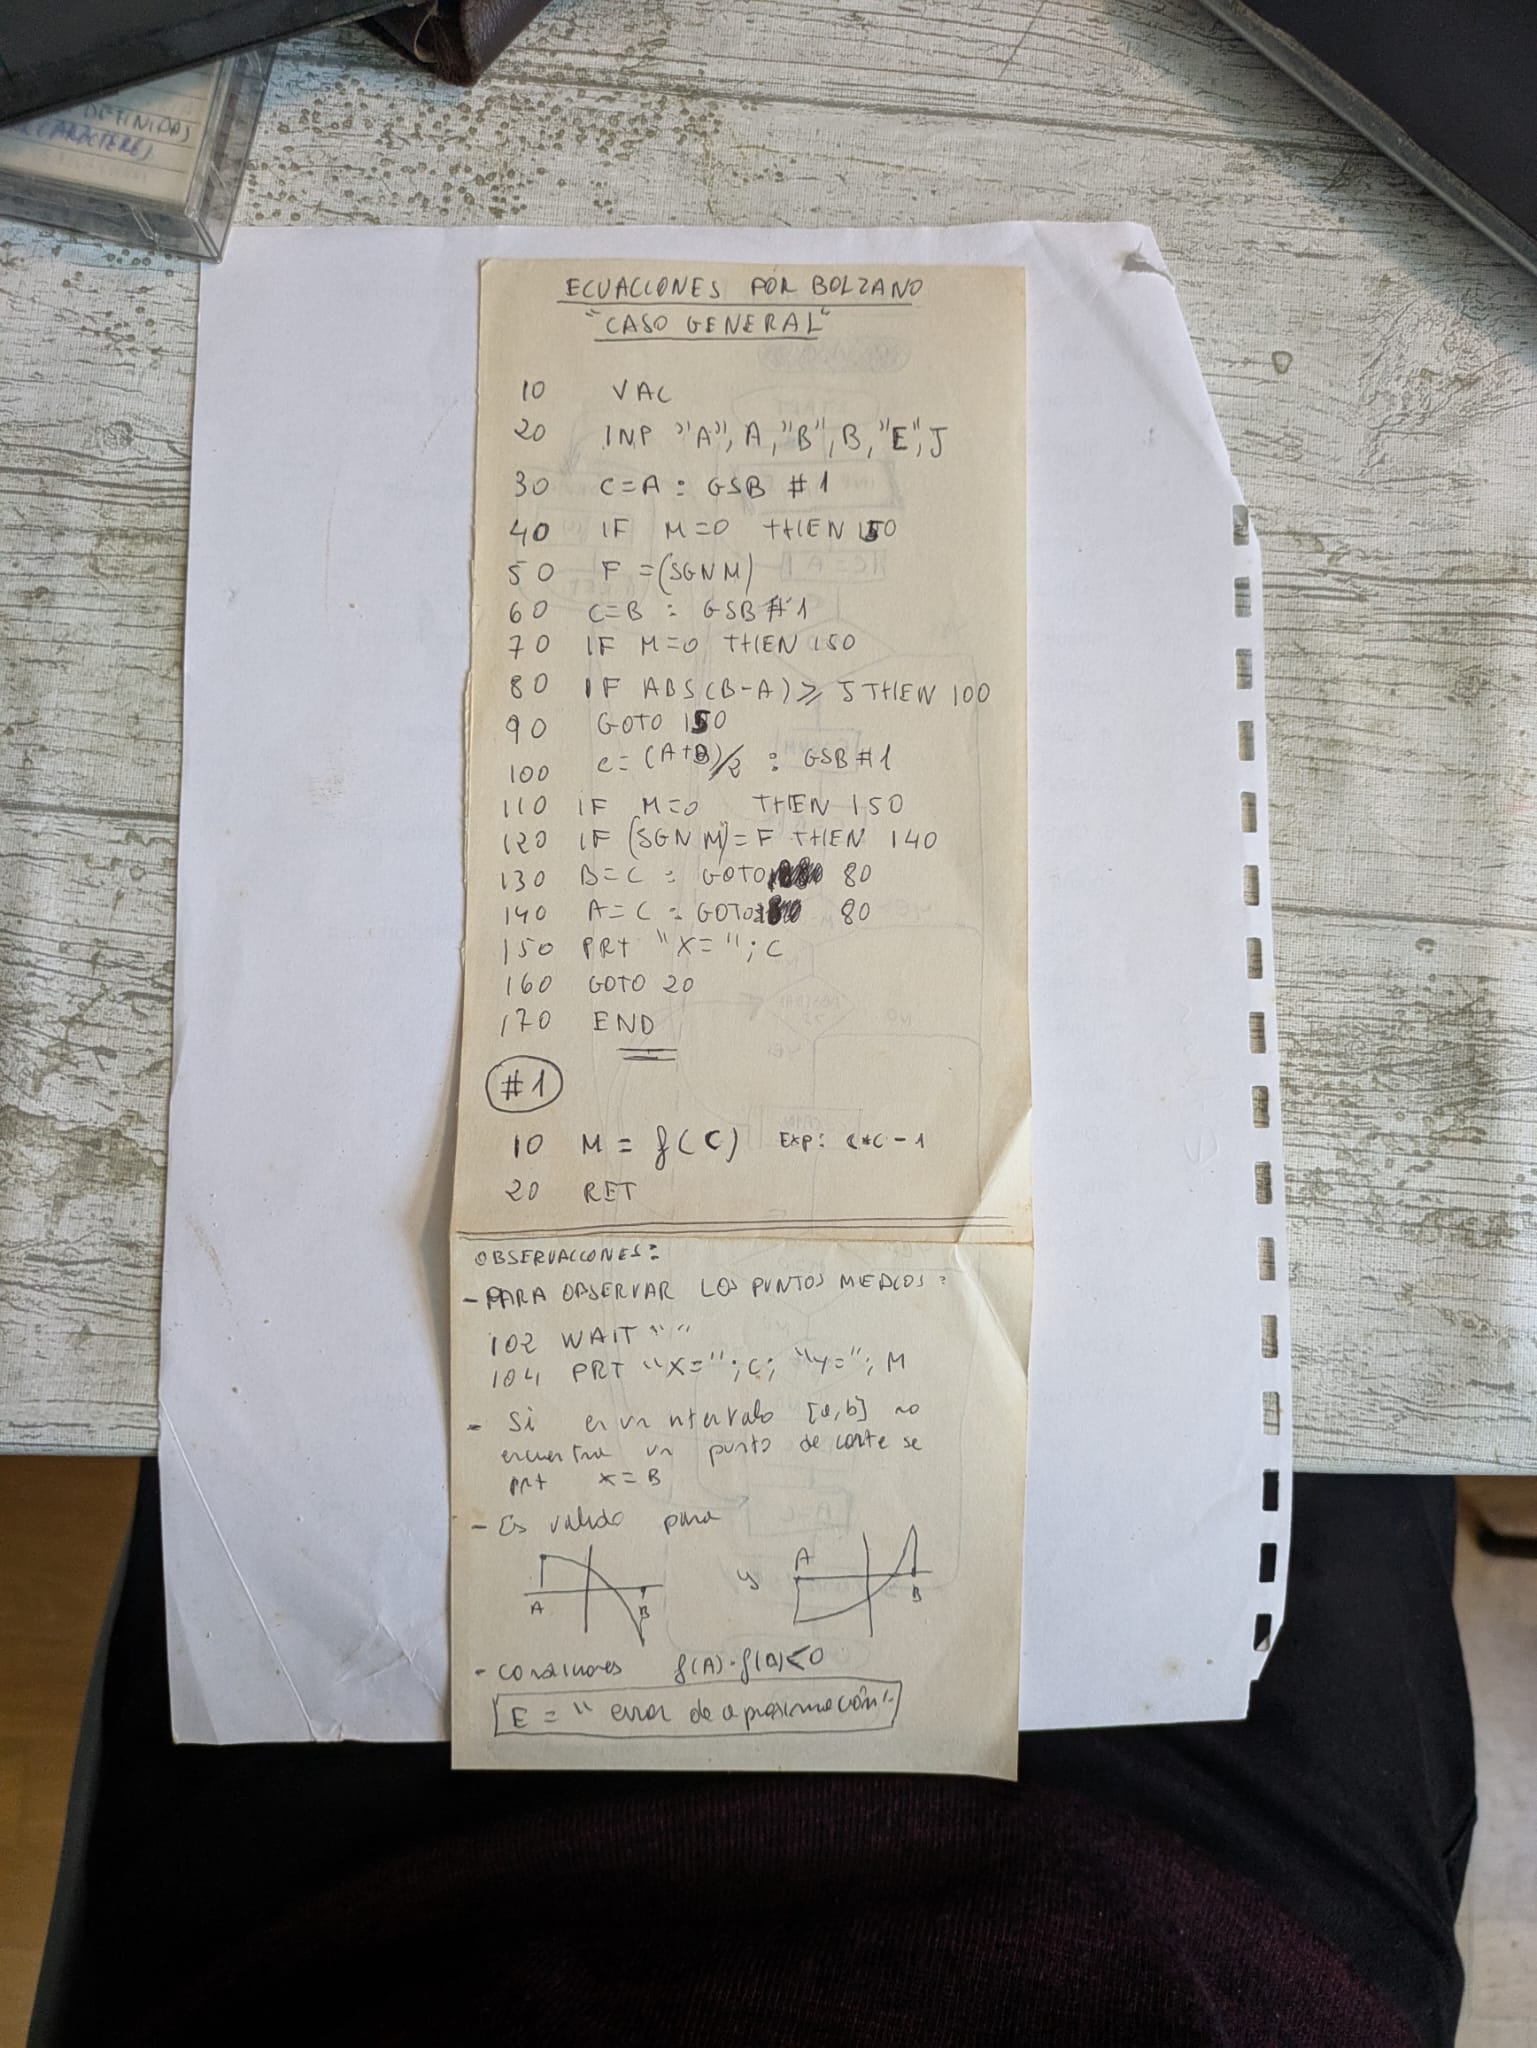 DEFINIDAS
CARACTERES
ECUACIONES POR BOLZANO
"CASO GENERAL"
10 VAC
20 INP "A", A, "B", B, "E", J
30 C=A : GSB #1
40 IF M=0 THEN 150
50 F=(SGN M)
60 C=B : GSB #1
70 IF M=0 THEN 150
80 IF ABS(B-A)≥ J THEN 100
90 GOTO 150
100 C=(A+B)/2 : GSB #1
110 IF M=0 THEN 150
120 IF (SGN M)=F THEN 140
130 B=C : GOTO 80
140 A=C : GOTO 80
150 PRT "X="; C
160 GOTO 20
170 END
#1
10 M = f(C) Exp: C*C-1
20 RET
OBSERVACIONES:
- PARA OBSERVAR LOS PUNTOS MEDIOS:
102 WAIT ""
104 PRT "X="; C; "Y="; M
- Si en un intervalo [a,b] no
encuentra un punto de corte se
prt x=B
- Es valido para
A B y A B
- condiciones f(A)·f(B)<0
E = "error de aproximación".